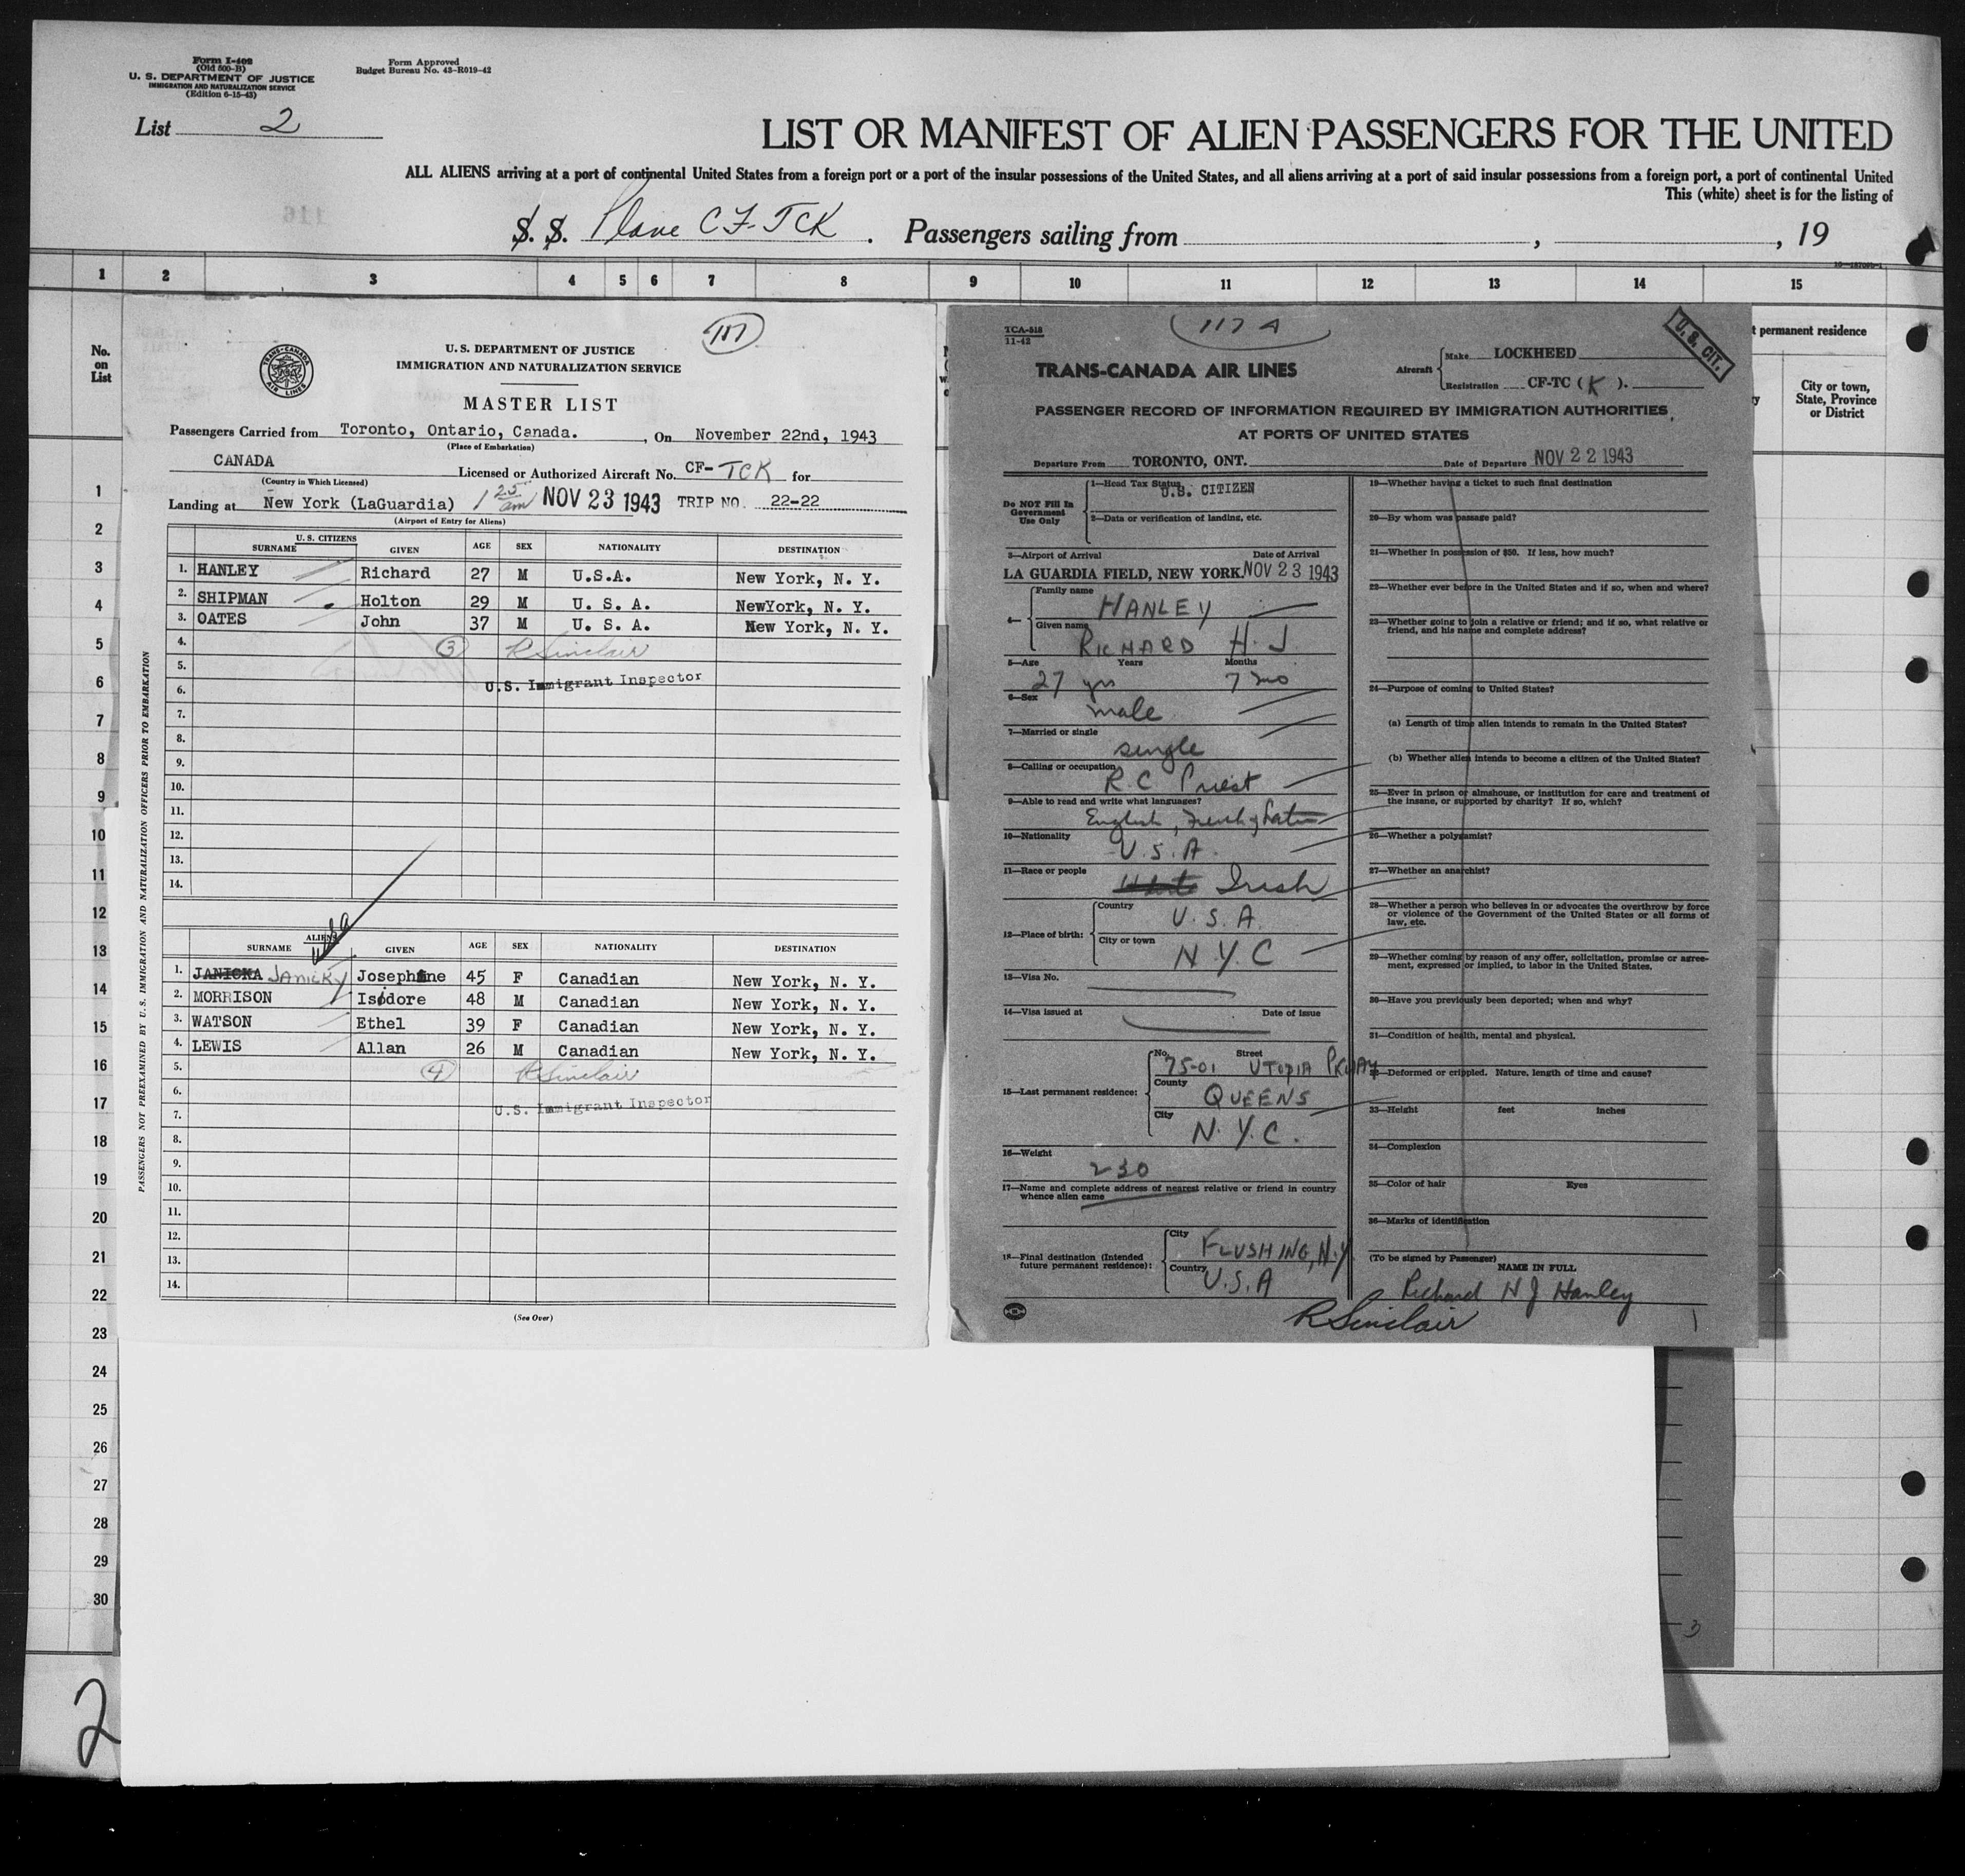 Form I-402
(Old 500-B)
U. S. DEPARTMENT OF JUSTICE
IMMIGRATION AND NATURALIZATION SERVICE
(Edition 6-15-43)
Form Approved
Budget Bureau No. 43-R019-42
List 2
LIST OR MANIFEST OF ALIEN PASSENGERS FOR THE UNITED
ALL ALIENS arriving at a port of continental United States from a foreign port or a port of the insular possessions of the United States, and all aliens arriving at a port of said insular possessions from a foreign port, a port of continental United
This (white) sheet is for the listing of
S. S. Plane CF-TCK . Passengers sailing from , , 19
1 2 3 4 5 6 7 8 9 10 11 12 13 14 15
No.
on
List
t permanent residence
City or town,
State, Province
or District
1
2
3
4
5
6
7
8
9
10
11
12
13
14
15
16
17
18
19
20
21
22
23
24
25
26
27
28
29
30
2
117
TRANS-CANADA AIR LINES
U. S. DEPARTMENT OF JUSTICE
IMMIGRATION AND NATURALIZATION SERVICE
MASTER LIST
Passengers Carried from Toronto, Ontario, Canada. , On November 22nd, 1943
(Place of Embarkation)
CANADA Licensed or Authorized Aircraft No. CF-TCK for
(Country in Which Licensed)
Landing at New York (LaGuardia) 1 25 am NOV 23 1943 TRIP NO. 22-22
(Airport of Entry for Aliens)
U. S. CITIZENS
SURNAME GIVEN AGE SEX NATIONALITY DESTINATION
1. HANLEY Richard 27 M U.S.A. New York, N. Y.
2. SHIPMAN Holton 29 M U. S. A. NewYork, N. Y.
3. OATES John 37 M U. S. A. New York, N. Y.
4. 3 R Sinclair
5.
6. U.S. Immigrant Inspector
7.
8.
9.
10.
11.
12.
13.
14.
PASSENGERS NOT PREEXAMINED BY U. S. IMMIGRATION AND NATURALIZATION OFFICERS PRIOR TO EMBARKATION
ALIENS
SURNAME GIVEN AGE SEX NATIONALITY DESTINATION
1. JANICKA JANICKY Josephine 45 F Canadian New York, N. Y.
2. MORRISON Isidore 48 M Canadian New York, N. Y.
3. WATSON Ethel 39 F Canadian New York, N. Y.
4. LEWIS Allan 26 M Canadian New York, N. Y.
5. 4 R Sinclair
6.
7. U.S. Immigrant Inspector
8.
9.
10.
11.
12.
13.
14.
(See Over)
TCA-518
11-42
117 A
U. S. CIT.
TRANS-CANADA AIR LINES
Aircraft
Make LOCKHEED
Registration CF-TC ( K ).
PASSENGER RECORD OF INFORMATION REQUIRED BY IMMIGRATION AUTHORITIES
AT PORTS OF UNITED STATES
Departure From TORONTO, ONT. Date of Departure NOV 22 1943
Do NOT Fill In
Government
Use Only
1—Head Tax Status U.S. CITIZEN
2—Data or verification of landing, etc.
3—Airport of Arrival Date of Arrival
LA GUARDIA FIELD, NEW YORK. NOV 23 1943
4—
Family name
HANLEY
Given name
RICHARD H. J
5—Age Years Months
27 yrs 7 mo
6—Sex
male
7—Married or single
single
8—Calling or occupation
R.C Priest
9—Able to read and write what languages?
English, French & Latin
10—Nationality
U.S.A.
11—Race or people
White Irish
12—Place of birth:
Country
U.S.A.
City or town
N.Y.C
13—Visa No.
14—Visa issued at Date of issue
15—Last permanent residence:
No. Street
75-01 UTOPIA PKWAY
County
QUEENS
City
N.Y.C.
16—Weight
230
17—Name and complete address of nearest relative or friend in country
whence alien came
18—Final destination (Intended
future permanent residence):
City
FLUSHING, N.Y.
Country
U.S.A
19—Whether having a ticket to such final destination
20—By whom was passage paid?
21—Whether in possession of $50. If less, how much?
22—Whether ever before in the United States and if so, when and where?
23—Whether going to join a relative or friend; and if so, what relative or
friend, and his name and complete address?
24—Purpose of coming to United States?
(a) Length of time alien intends to remain in the United States?
(b) Whether alien intends to become a citizen of the United States?
25—Ever in prison or almshouse, or institution for care and treatment of
the insane, or supported by charity? If so, which?
26—Whether a polygamist?
27—Whether an anarchist?
28—Whether a person who believes in or advocates the overthrow by force
or violence of the Government of the United States or all forms of
law, etc.
29—Whether coming by reason of any offer, solicitation, promise or agree-
ment, expressed or implied, to labor in the United States.
30—Have you previously been deported; when and why?
31—Condition of health, mental and physical.
32—Deformed or crippled. Nature, length of time and cause?
33—Height feet inches
34—Complexion
35—Color of hair Eyes
36—Marks of identification
(To be signed by Passenger)
NAME IN FULL
Richard H J Hanley
R Sinclair